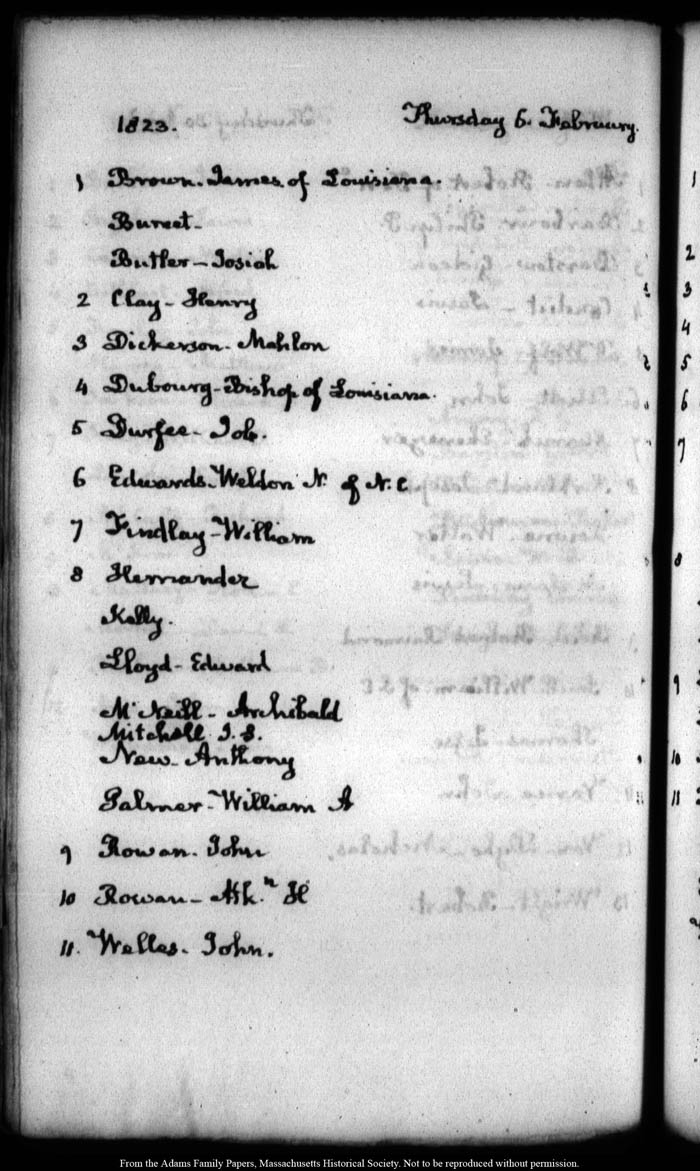 1823. Thursday 6. February.
1 Brown. James of Louisiana.
Burnet-
Butler-Josiah
2 Clay-Henry
3 Dickerson-Mahlon
4 Dubourg-Bishop of Louisiana.
5 Durfee-Job.
6 Edwards-Weldon N. of N.C
7 Findlay-William
8 Hernandez
Kelly.
Lloyd-Edward
McNeill-Archibald
Mitchell
New-Anthony
Palmer-William A
9 Rowan-John
10 Rowan-
11. Welles-John.
1
2
3
4
5
6
7
8
9
10
11
From the Adams Family Papers, Massachusetts Historical Society. Not to be reproduced without permission.